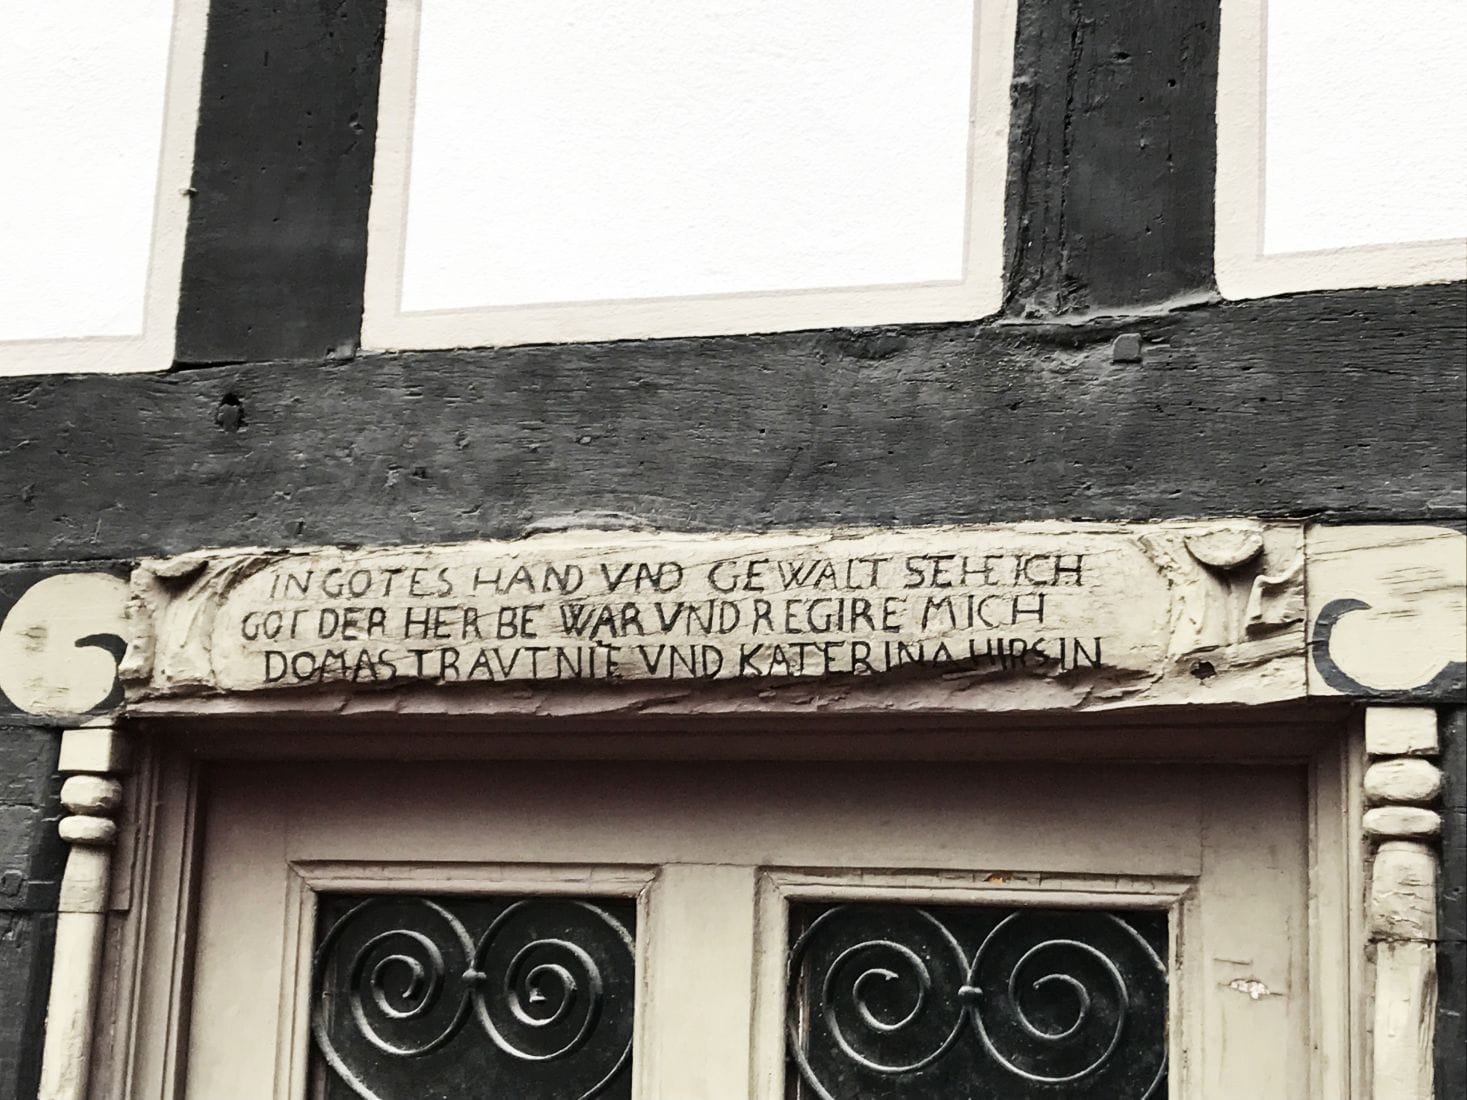 IN GOTES HAND VND GEWALT SEHE ICH
GOT DER HER BE WAR VND REGIRE MICH
DOMAS TRAVTNIE VND KATERINA HIRSIN